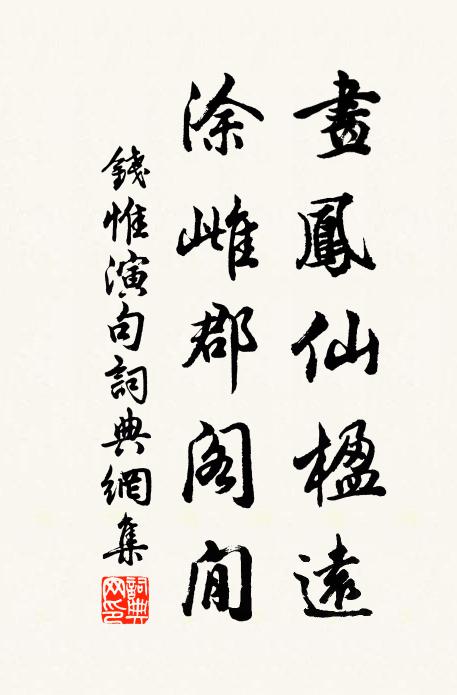 畫鳳仙楹遠
涂雌郡閣閒
錢惟演句詞典網集
詞典
网印